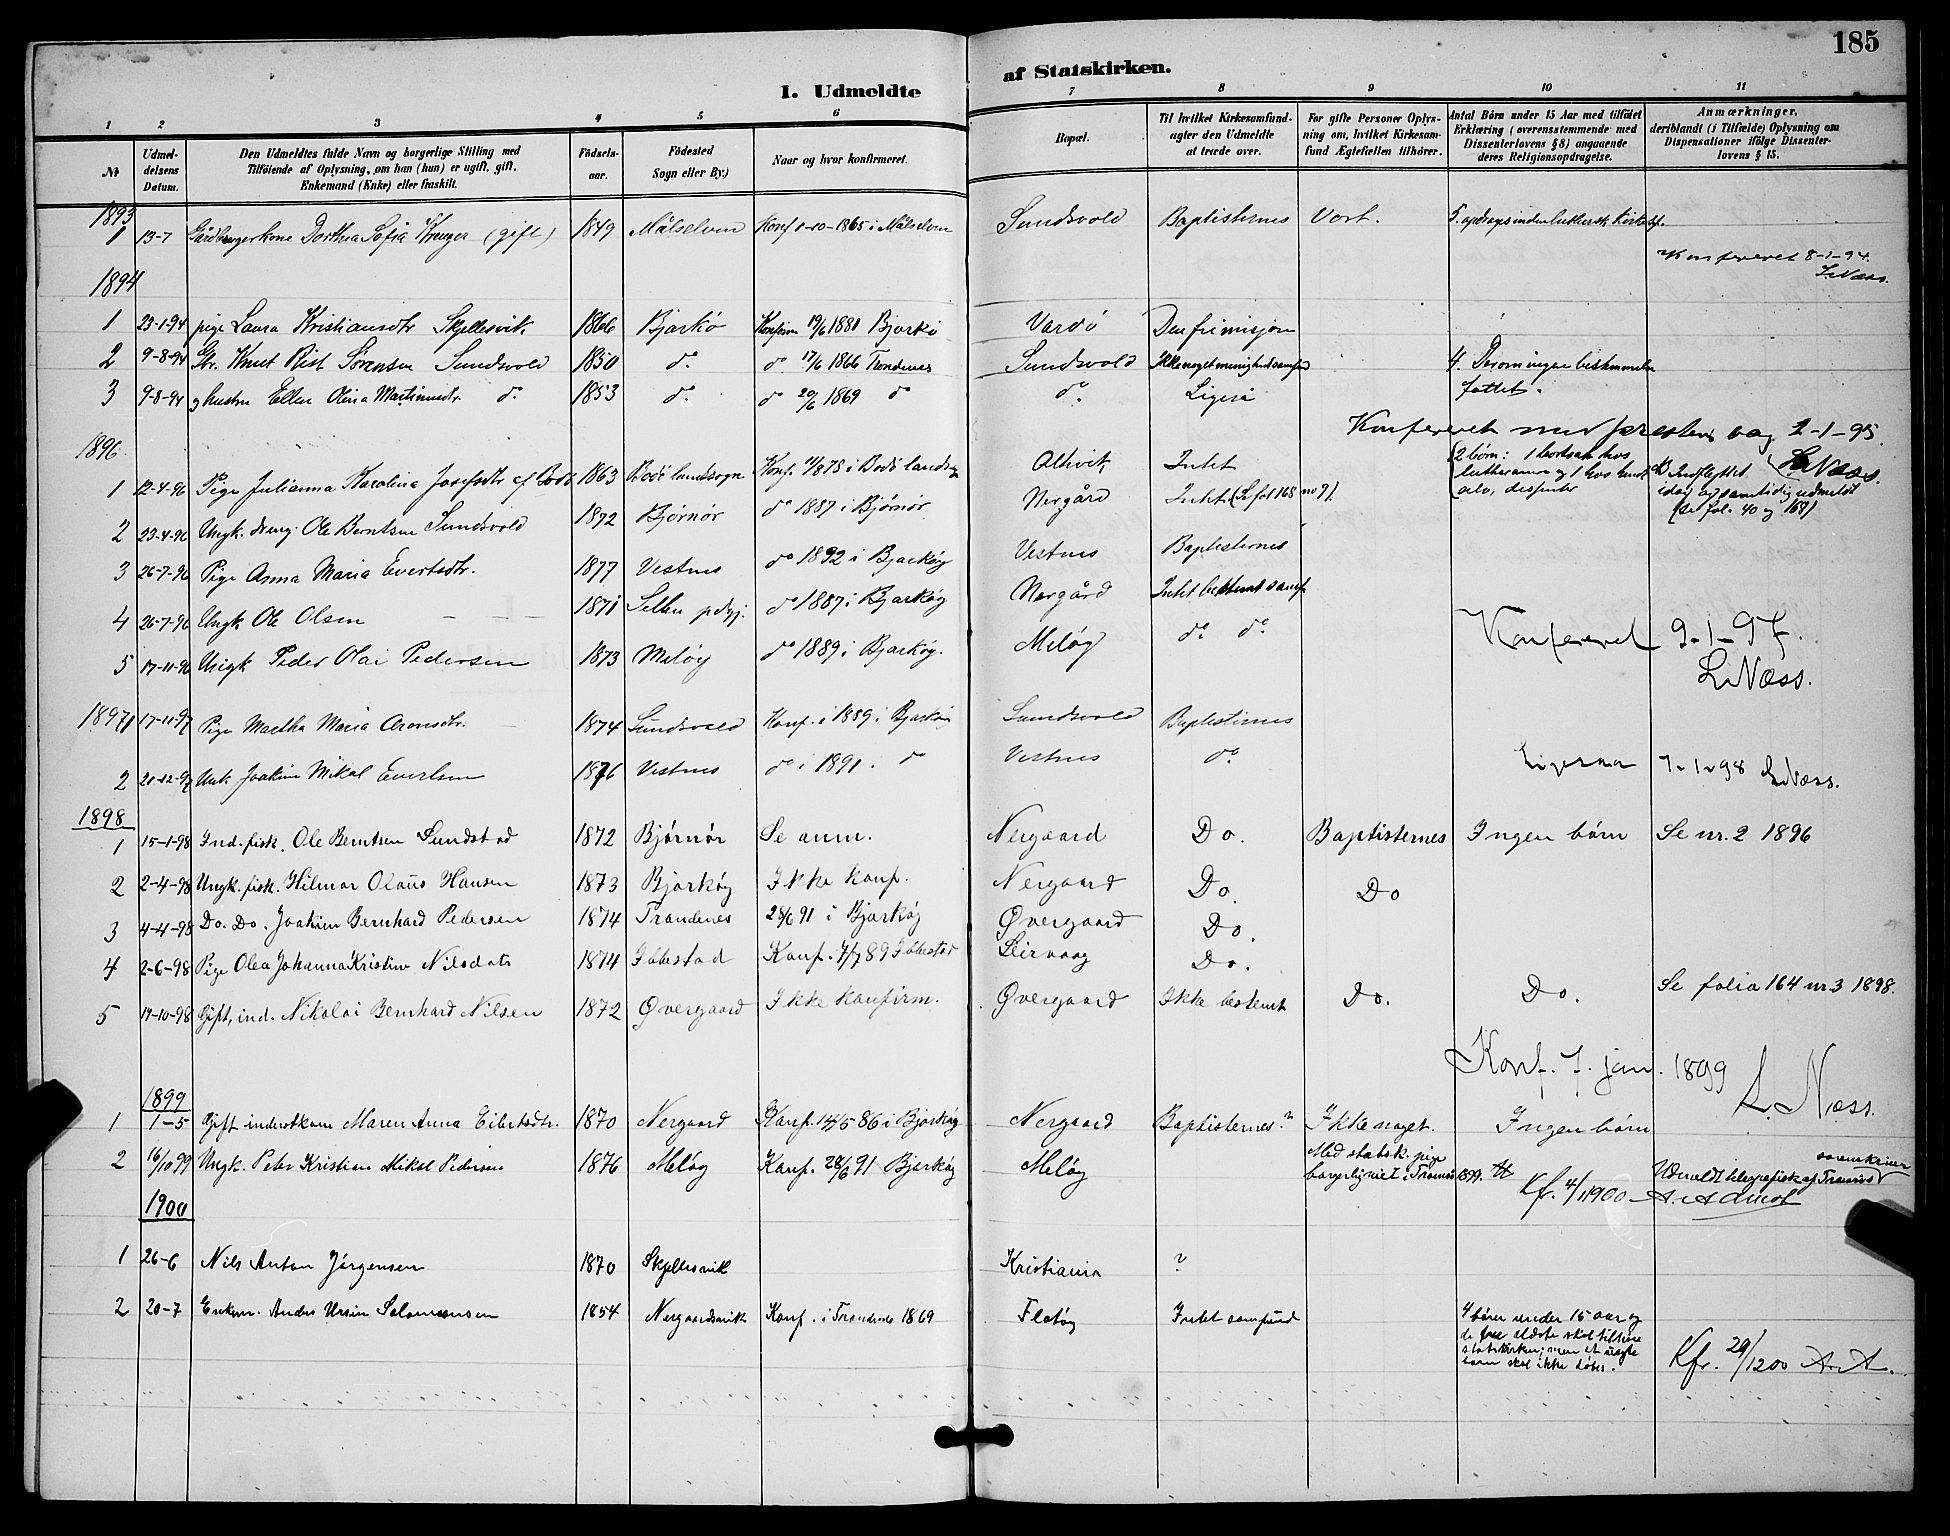 185
I. Udmeldte af Statskirken.
1 2 3 4 5 6 7 8 9 10 11
No
Udmeldelsens Datum.
Den Udmeldtes fulde Navn og borgerlige Stilling med
Tilföiende af Oplysning, om han (hun) er ugift, gift,
Enkemand (Enke) eller fraskilt.
Födsels-
aar.
Födested
Sogn eller By.)
Naar og hvor konfirmeret.
Bopæl.
Til hvilket Kirkesamfund-
agter den Udmeldte
at træde over.
For gifte Personer Oplys-
ning om, hvilket Kirkesam-
fund Ægtefællen tilhörer.
Antal Börn under 15 Aar med tilföiet
Erklæring (overensstemmende med
Dissenterlovens § 8) angaaende
deres Religionsopdragelse.
Anmærkninger,
deriblandt (i Tilfælde) Oplysning om
Dispensationer ifölge Dissenter-
lovens § 15.
1893
1 13-7 Dorthea Sofia Kruger (gift) 1849 Målselven Konf 1-10-1865 i Målselven Sundsvold Baptisternes Vort. 5. luthersk
Konfereret 8-1-94.
L. Næss.
1894
1 23-1-94 pige Laura Kristiansdtr Skjellesvik 1866 Bjarkö Konfirm 19/6 1881 Bjarkö Vardö Den frimisjon
2 9-8-94 Gbr. Knut Rist Sörensen Sundsvold 1850 do. do 17/6 1866 Trondenes Sundsvold Ikke noget menighedssamfund 4. Derom ingen bestemmelse
fattet.
3 9-8-94 og hustru Ellen Olina Martinusdtr. do. 1853 do. do 20/6 1869 do do. Ligeså
Konfereret med prestens bog 2-1-95.
L. Næss.
1896
1 12-4-96 Pige Julianna Karolina Josefsdtr af Bodö 1863 Bodö landsogn Konf. 1878 i Bodö landsogn Altevik Intet 2 börn: 1 bortsat hos
lutheranere og 1 hos
dissenter
Indflyttet
idag og samtidig udmeldt
(se fol. 40 og 168)
2 23-4-96 Ungk. dreng Ole Berntsen Sundsvold 1872 Björnör do 1887 i Björnör Nergård Intet (Se fol 168 no 9).
3 26-7-96 Pige Anna Maria Evertsdtr. 1877 Vestnes do 1892 i Bjarköy Vestnes Baptisternes
4 26-7-96 Ungk. Ole Olsen 1871 do 1887 i Bjarköy Nergård Intet bestemt samf
5 17-11-96 Ungk Peder Olai Pedersen 1873 Melöy do 1889 i Bjarköy. Melöy do. do.
Konfereret 9-1-97.
L. Næss.
1897
1 17-11-97 Pige Martha Maria Aronsdtr. 1874 Sundsvold Konf. i 1889 i Bjarköy Sundsvold Baptisternes
2 20-12-97 Unk. Joakim Mikal Evertsen 1876 Vestnes do i 1891. do Vestnes do.
Ligesaa 7-1-98 L. Næss.
1898
1 15-1-98 Ind. fisk. Ole Berntsen Sundstad 1872 Björnör Se anm. Nergaard Do. Baptisternes Ingen börn Se nr. 2 1896
2 2-4-98 Ungk. fisk. Hilmar Olaus Hansen 1873 Bjarköy Ikke konf. Nergaard Do. Do
3 4-4-98 Do. Do. Joakim Bernhard Pedersen 1874 Trondenes 28/6 91 i Bjarköy Övergaard Do.
4 2-6-98 Pige Olea Johanna Kristine Nilsdatr 1874 Ibbestad Konf. 7/7 89 Ibbestad Leirvaag Do.
5 19-10-98 Gift, ind. Nikolai Bernhard Nilsen 1872 Övergaard Ikke konfirm. Övergaard Ikke bestemt Do. Do. Se folia 164 nr. 3 1898.
Konf. 7. jan. 1899 L. Næss.
1899
1 1-5 Gift inderstkone Maren Anna Eilertsdtr. 1870 Nergaard Konf. 14/5 86 i Bjarköy Nergaard Baptisternes? Ikke noget. Ingen börn
2 16/10 99 Ungk. Peter Kristian Mikal Pedersen 1876 Melöy Konf. 28/6 91 Bjarköy Melöy Med statsk. pige
borgerlig viet i Tromsö 1899. Udmeldt telegrafisk af Tromsö
Kfr. 4/1 1900 A.
1900
1 26-6 Nils Anton Jörgensen 1870 Skjellesvik Kristiania ?
2 20-7 Enkem. Anders Ursin Salomonsen 1854 Nergaardsvik Konf. i Trondenes 1869 Flatöy Intet samfund 4 börn under 15 aar og
de tre ældste skal tilhöre
statskirken; men et
barn skal ikke döbes.
Kfr. 29/12 00 A. A.